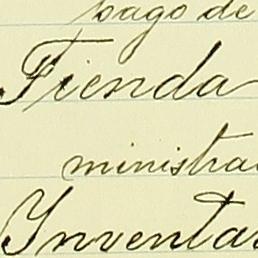 pago de
Tienda
ministra
Inventar